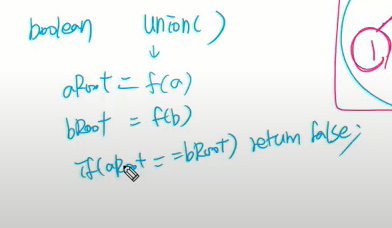 boolean union()
↓
aRoot = f(a)
bRoot = f(b)
if(aRoot == bRoot) return false;
1